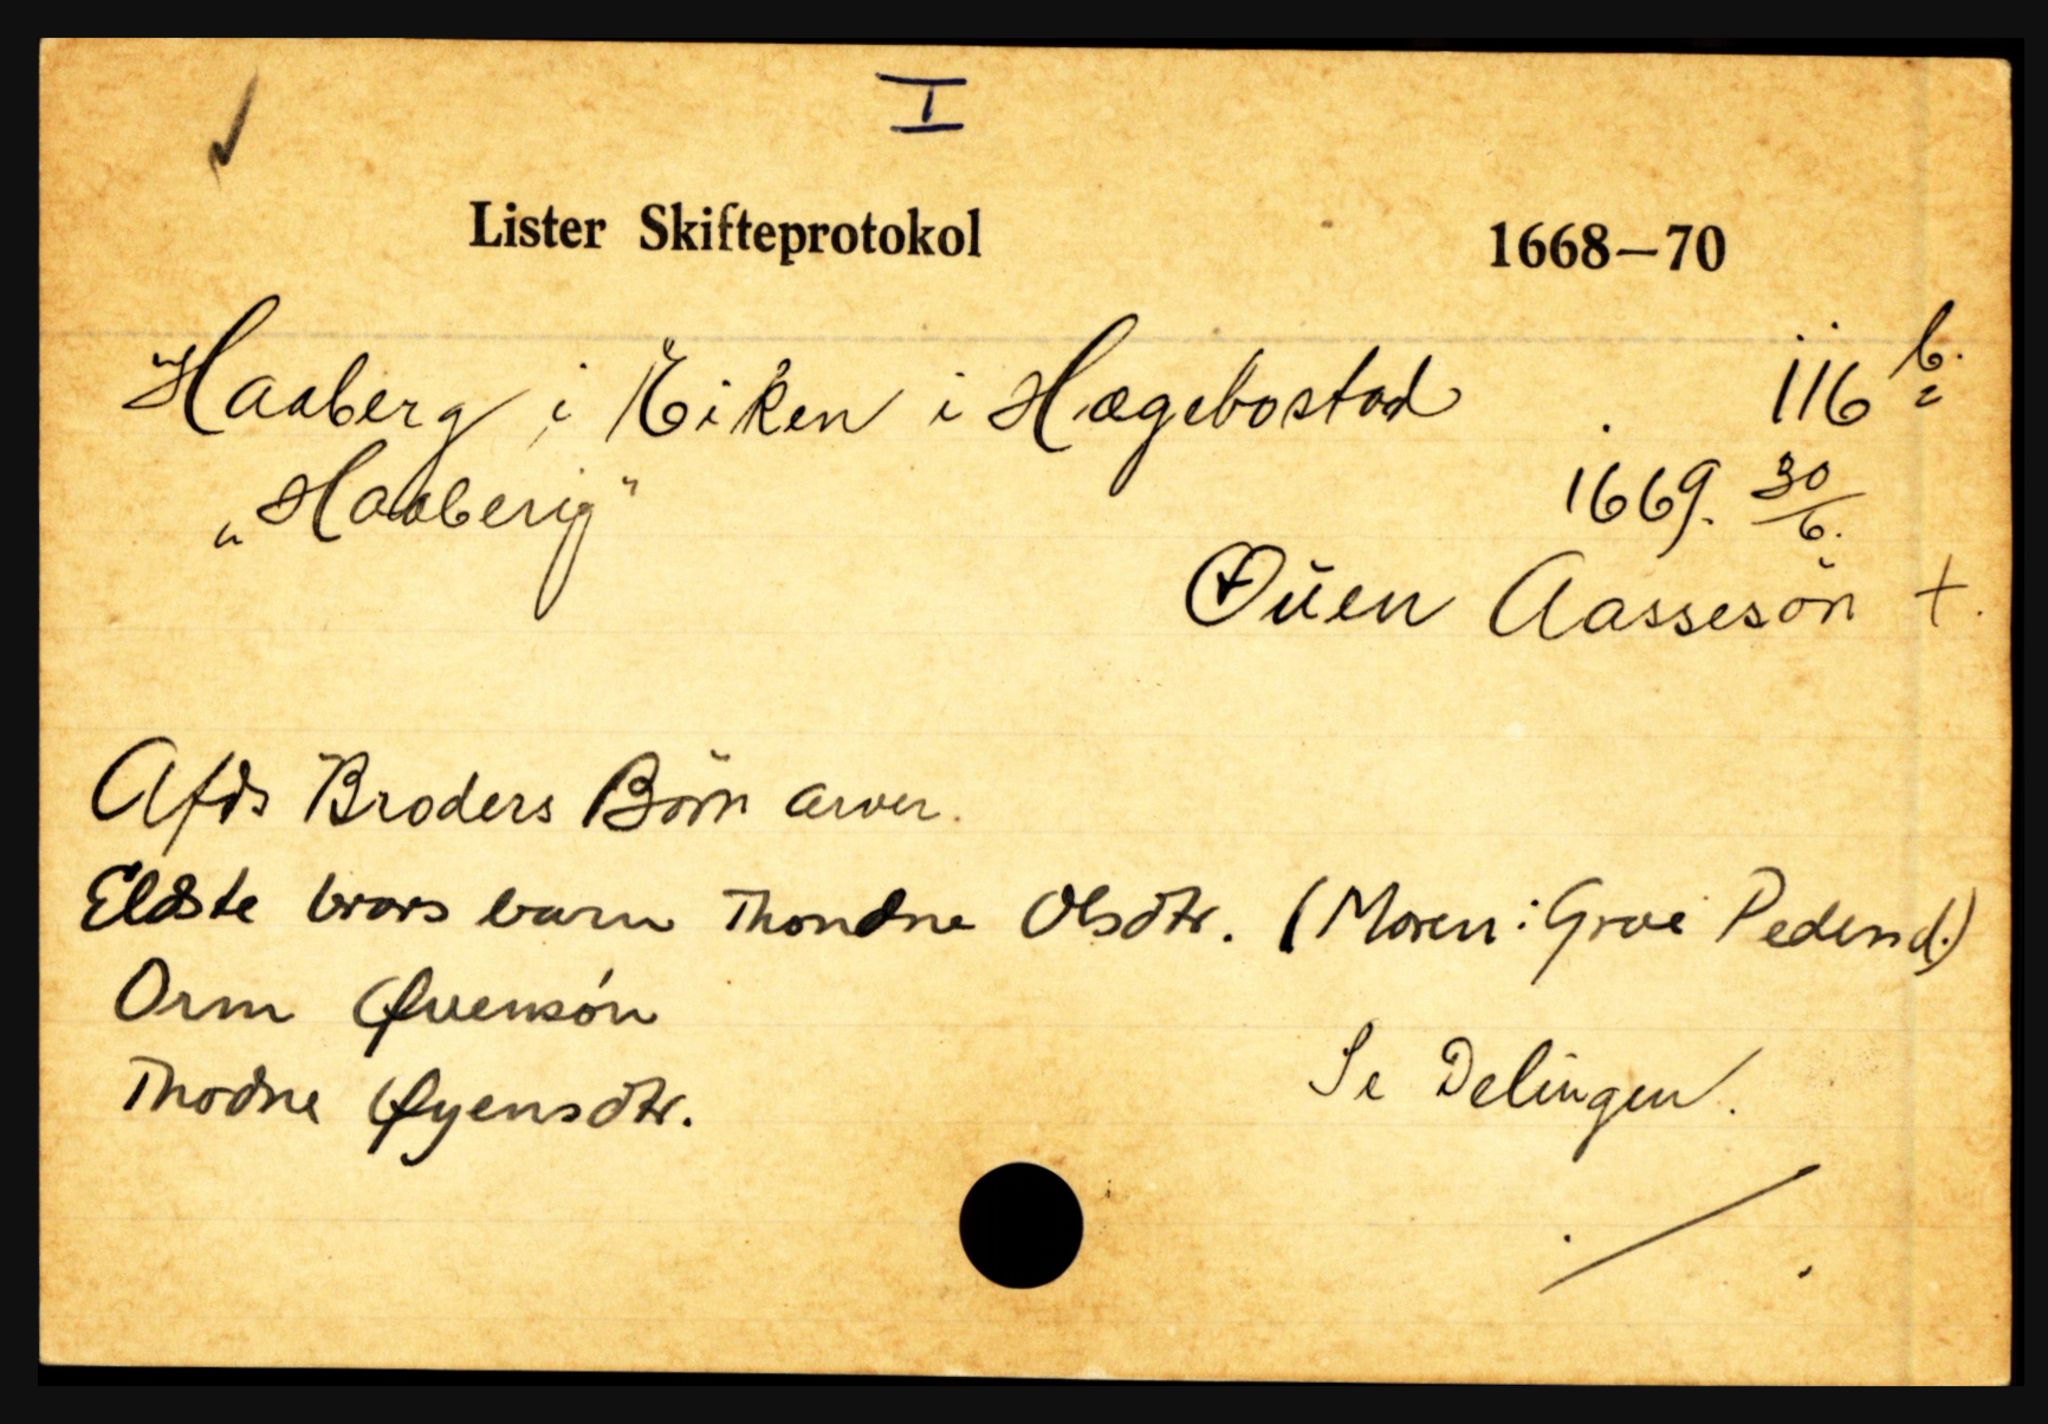 I
Lister Skifteprotokol 1668–70
Haaberg i Eiken i Hægebostad . 116 b.
„Haaberig" 1669. 30/6.
Øüen Aassesön +.
Afds Broders Börn arver.
Eldste brors barn Thondne Olsdtr. (Moren: Groe Pedersd.)
Orm Øvensön
Thodne Øyensdtr.
Se Delingen.